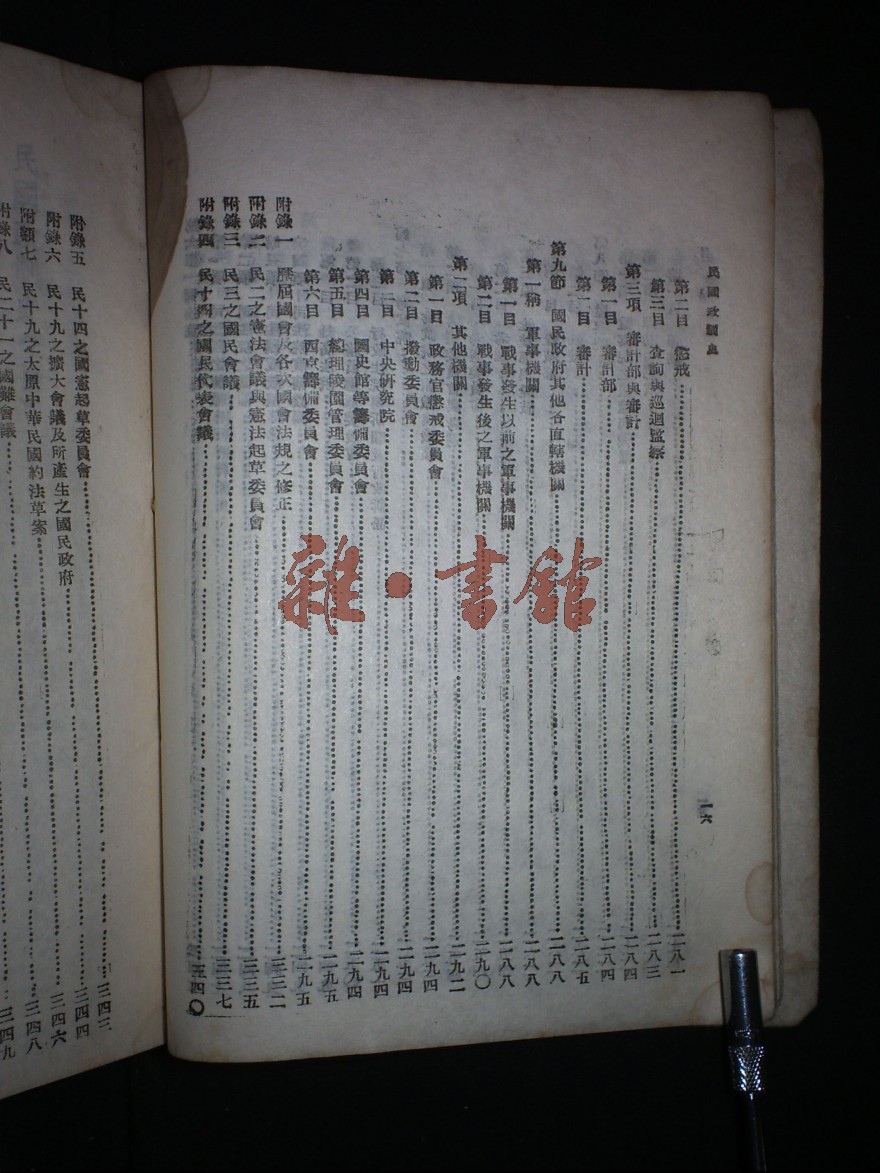 民國政制史
一六
第二目 懲戒……二八一
第三目 查詢與巡迴監察……二八三
第三項 審計部與審計……二八四
第一目 審計部……二八四
第二目 審計……二八五
第九節 國民政府其他各直轄機關……二八八
第一項 軍事機關……二八八
第一目 戰事發生以前之軍事機關……二八八
第二目 戰事發生後之軍事機關……二九〇
第二項 其他機關……二九二
第一目 政務官懲戒委員會……二九四
第二目 撥勳委員會……二九四
第三目 中央研究院……二九四
第四目 國史館等籌備委員會……二九四
第五目 總理陵園管理委員會……二九五
第六目 西京籌備委員會……二九五
附錄一 歷屆國會及各次國會法規之修正……三三二
附錄二 民二之憲法會議與憲法起草委員會……三三五
附錄三 民三之國民會議……三三七
附錄四 民十四之國民代表會議……三四〇
附錄五 民十四之國憲起草委員會……三四三
附錄六 民十九之擴大會議及所產生之國民政府……三四四
附錄七 民十九之太原中華民國約法草案……三四六
附錄八 民二十一之國難會議……三四八
三四九
雜·書館